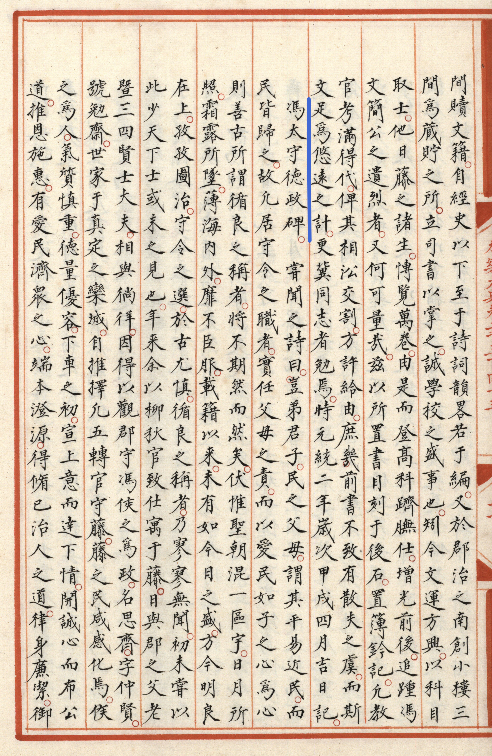 間賾文籍自經史以下至于詩詞韻畧若干編又於郡治之南創小樓三
間為藏貯之所立司書以掌之誠學校之盛事也矧今文運方興以科目
取士他日藤之諸生慱覽萬卷由是而登高科躋膴仕增光前後追踵馮
文簡公之遺烈者又何可量哉茲以所置書目刻于後石置薄鈐記允教
官考滿得代俾其相沿交割方許給由庶幾前書不致有散失之虞而斯
文足為悠遠之計更冀同志者勉焉時元統二年歲次甲戌四月吉日記
馮太守德政碑 甞聞之詩曰豈弟君子民之父母謂其平易近民而
民皆歸之故允居守令之職者實任父母之責而以愛民如子之心為心
則善古所謂循良之稱者將不期然而然矣伏惟聖朝混一區宇日月所
照霜露所墜薄海内外靡不臣服載籍以來未有如今日之盛方今明良
在上孜孜圖治守令之選於古尤慎循良之稱者乃寥寥無聞初未甞以
此少天下士或未之見也年来余以柳狄官致仕寓于藤日與郡之父老
暨三四賢士大夫相與徜徉因得以觀郡守馮侯之為政名思齊字仲賢
號勉齋世家于真定之欒城自推擇允五轉官守藤藤之民咸感化焉侯
之為人氣質慎重德量優容下車之初宣上意而達下情開誠心而布公
道推恩施惠有愛民濟衆之心端本澄源得脩已治人之道律身廉潔御